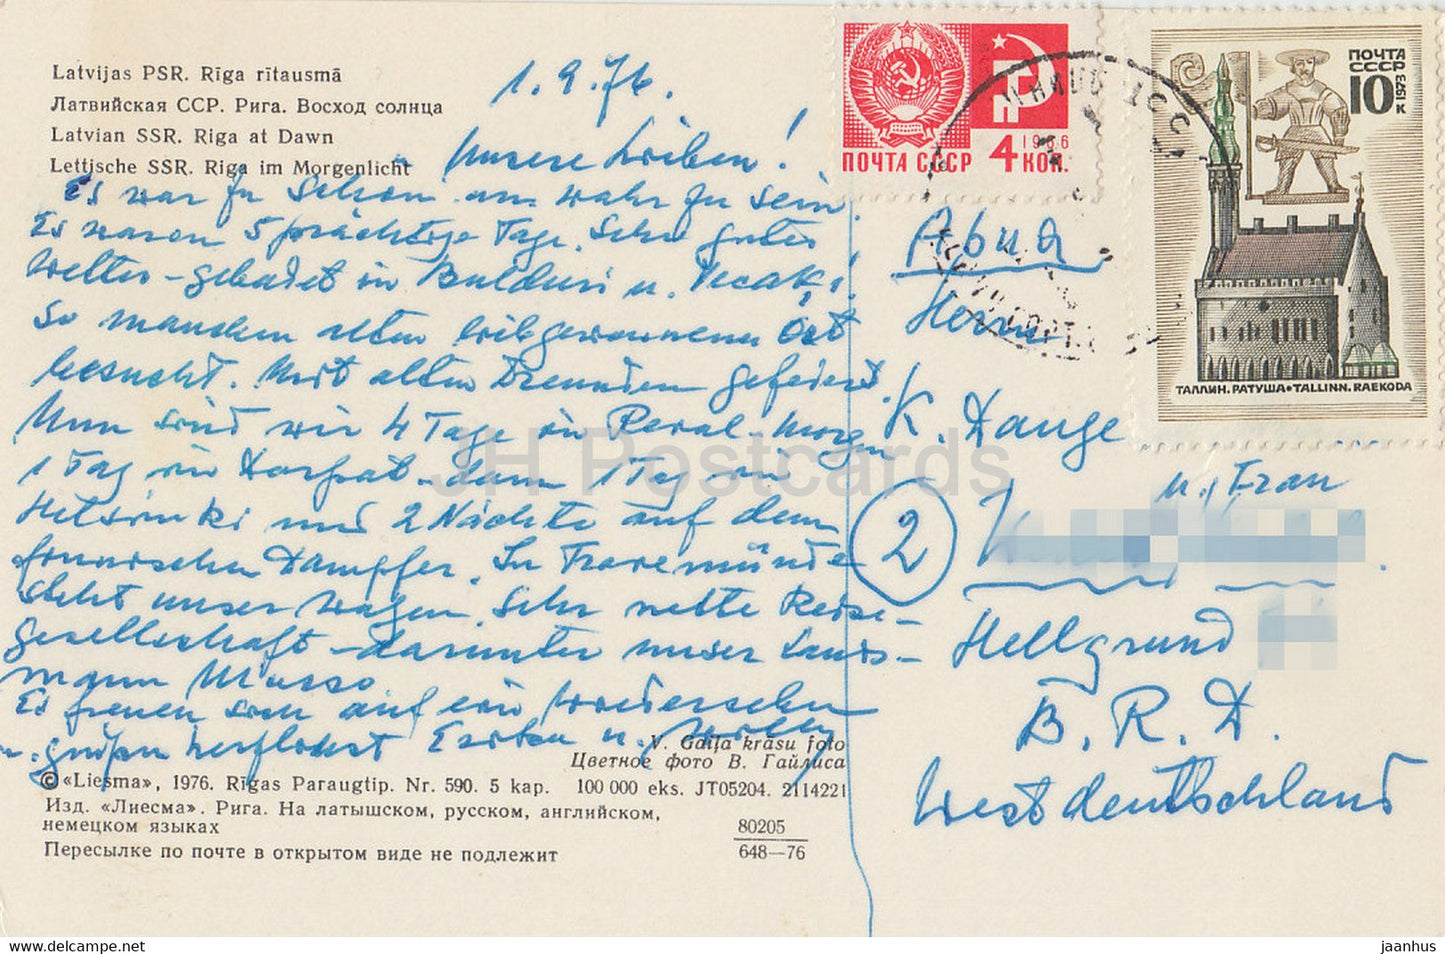 Latvijas PSR. Rīga rītausmā
Латвийская ССР. Рига. Восход солнца
Latvian SSR. Riga at Dawn
Lettische SSR. Riga im Morgenlicht
1.9.76.
Unsere Lieben!
Es war zu schön um wahr zu sein.
Es waren 5 prächtige Tage. Sehr gutes
Wetter - gebadet in Bulduri u.
So manchen alten liebgewonnenen Ort
besucht. Mit alten Freunden gefeiert.
Nun sind wir 4 Tage in Reval. Morgen
1 Tag in Dorpat - dann 1 Tag in
Helsinki und 2 Nächte auf dem
finnischen Dampfer. In Travemünde
steht unser Wagen. Sehr nette Reise-
gesellschaft - darunter unser Lands-
mann Musso
Es freuen sich auf ein Wiedersehen
u. grüßen herzlichst u. Willy
V. Gaiļa krāsu foto
Цветное фото В. Гайлиса
©«Liesma», 1976. Rīgas Paraugtip. Nr. 590. 5 kap. 100 000 eks. JT05204. 2114221
Изд. «Лиесма». Рига. На латышском, русском, английском,
немецком языках
Пересылке по почте в открытом виде не подлежит
80205
648—76
ПОЧТА СССР 4 КОП.
1966
ПОЧТА
СССР
10 К
1973
ТАЛЛИН. РАТУША • TALLINN. RAEKODA
Авиа
Herrn
K. Dange
u. Frau
2
Hellgrund
B.R.D.
Westdeutschland
JH Postcards
jaanhus.com